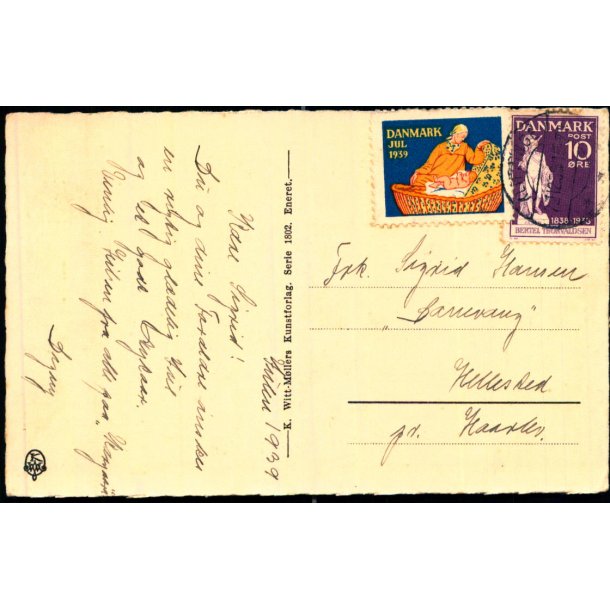 Julen 1939
Kære Sigrid!
Du og dine Forældre ønskes
en rigtig glædelig Jul
og et godt Nytaar.
Kærlig Hilsen fra alle paa
Dagny
K. Witt-Møllers Kunstforlag. Serie 1802. Eneret.
DANMARK
JUL
1939
DANMARK
POST
10
ØRE
1838-1938
BERTEL THORVALDSEN
Frk. Sigrid Hansen
Hellested
pr. Haarlev.